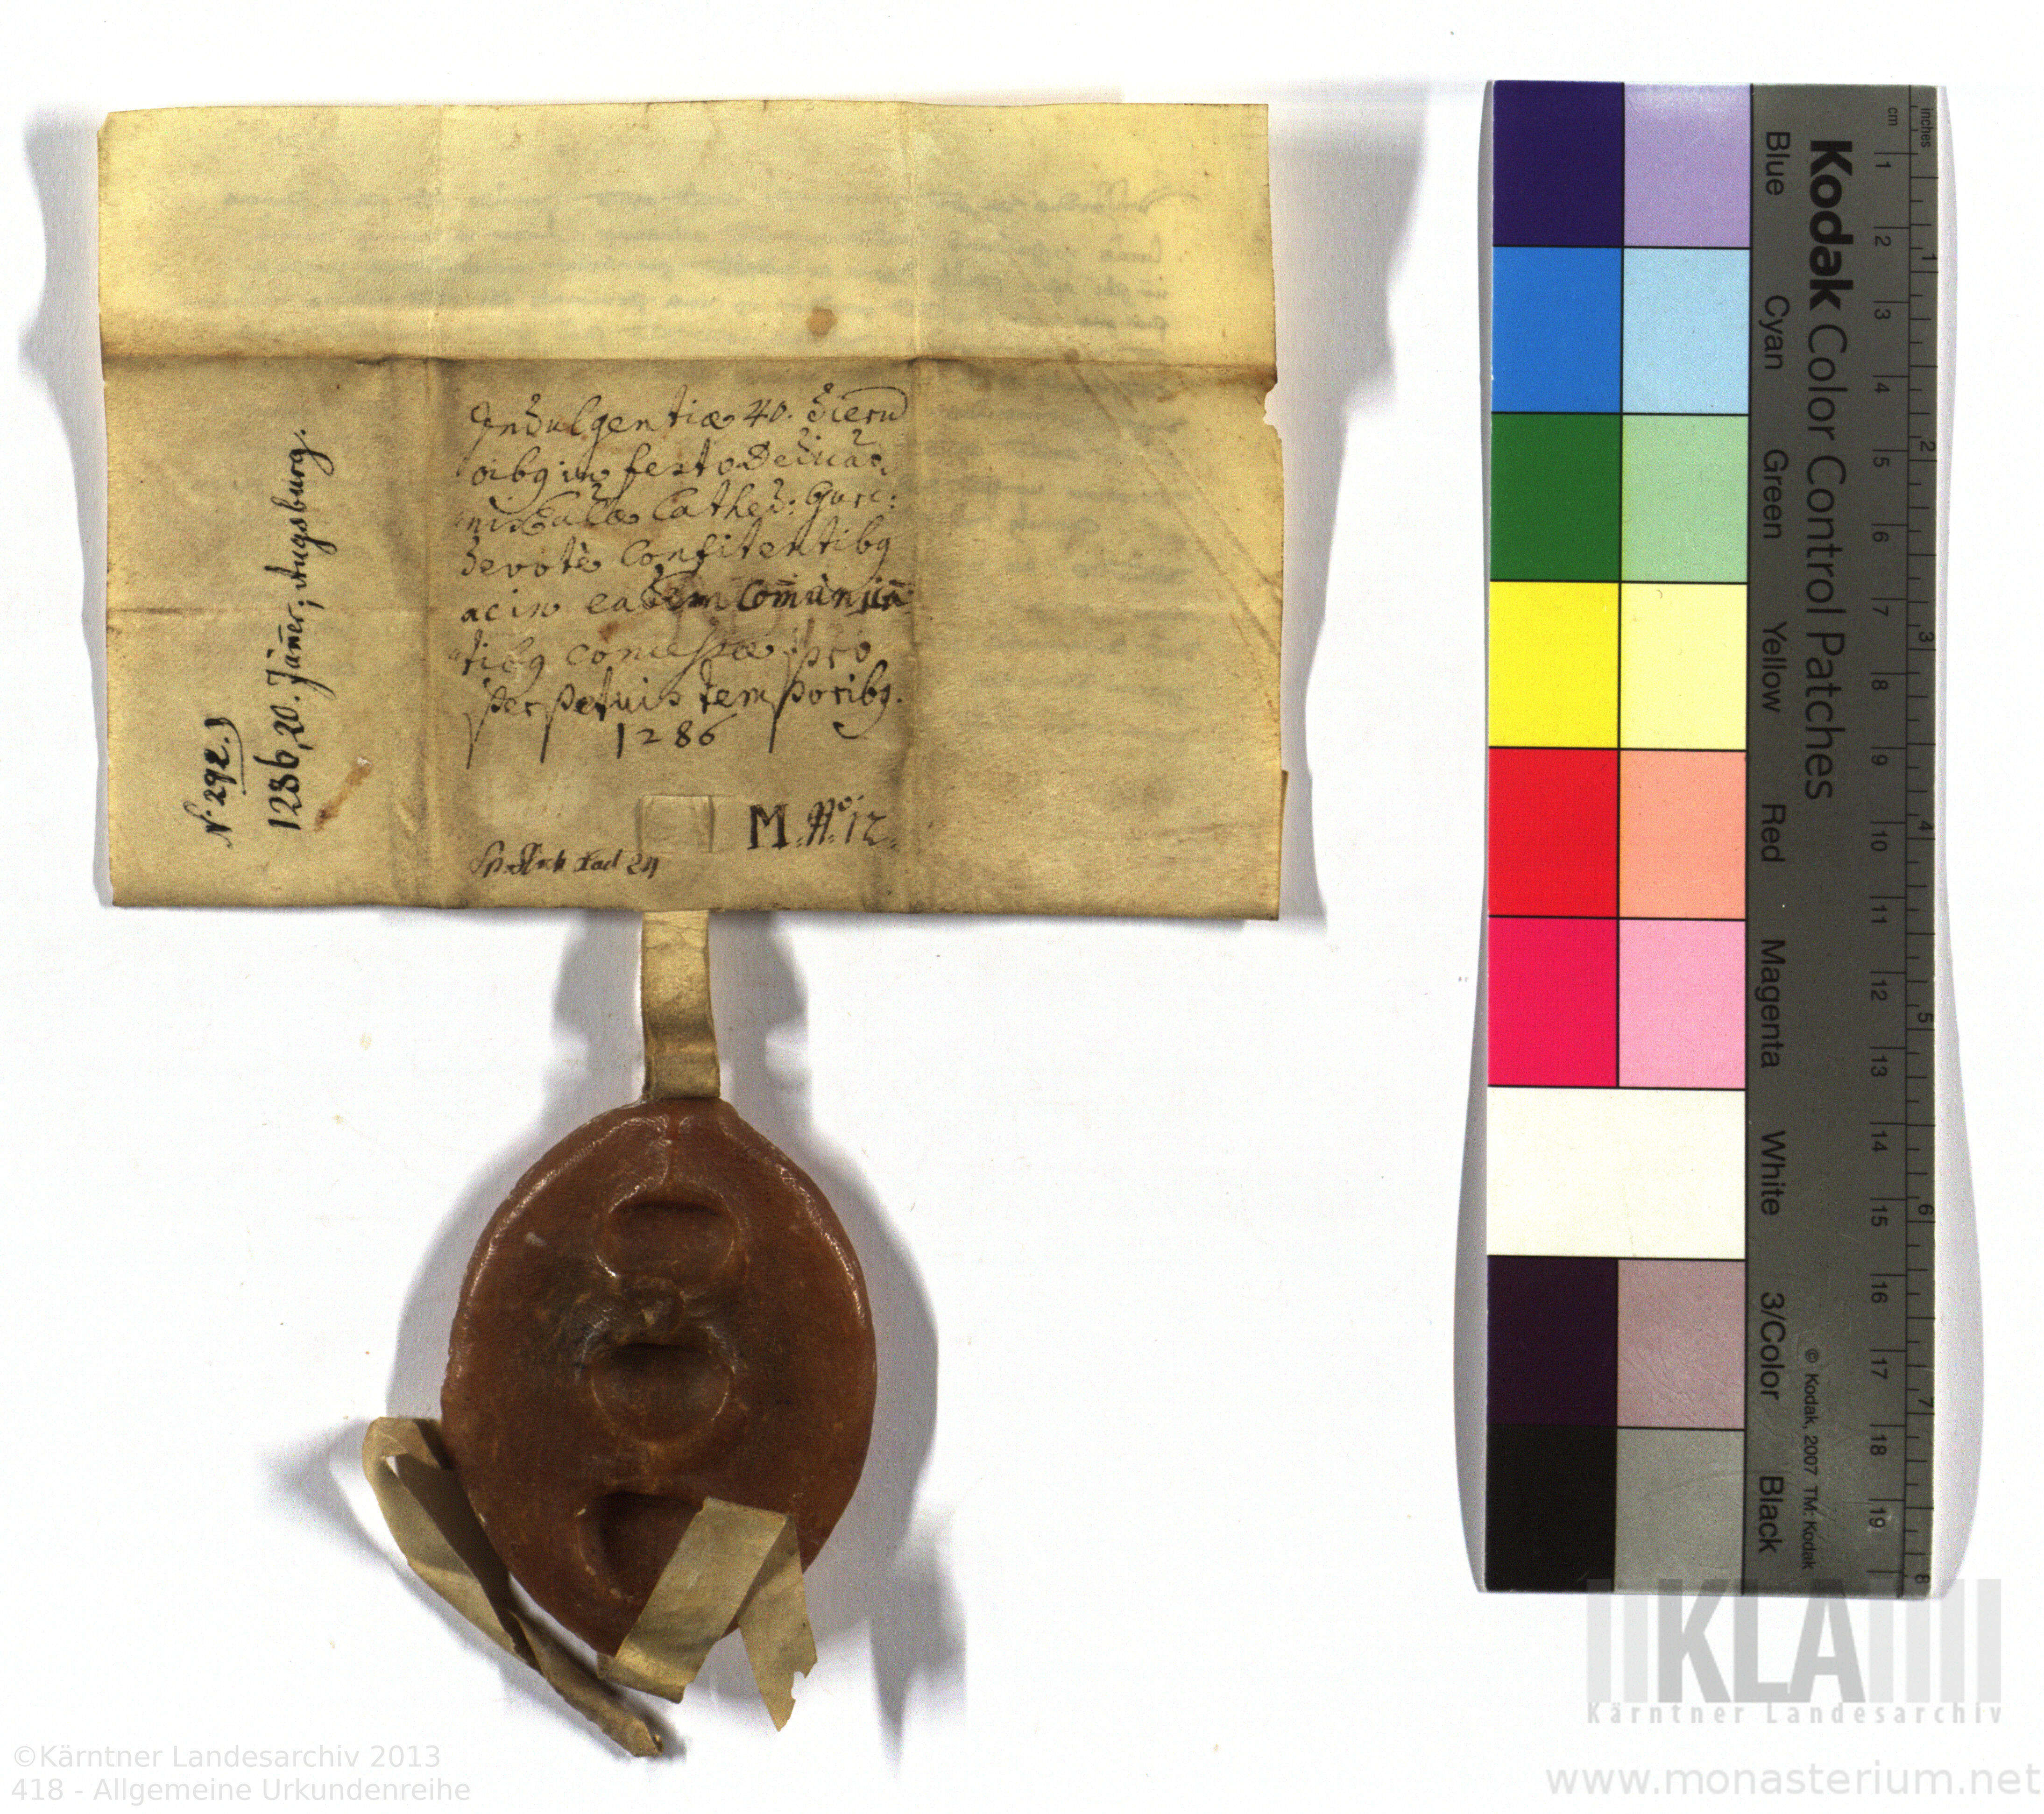 Indulgentiæ 40. dierũ
oibꝯ in festo Dedicaõ:
nis Eccłæ Cathed: Gurc:
devotè Confitentibꝯ
ac in eadem Com̃unicã
tibꝯ concessæ pro
perpetuis temporibꝯ.
1286
M. N.º 12.
Lad 24
N. 292.)
1286, 20. Jäñer, Augsburg.
Kodak Color Control Patches
Blue Cyan Green Yellow Red Magenta White 3/Color Black
© Kodak, 2007 TM: Kodak
cm 1 2 3 4 5 6 7 8 9 10 11 12 13 14 15 16 17 18 19
inches 1 2 3 4 5 6 7 8
KLA
Kärntner Landesarchiv
©Kärntner Landesarchiv 2013
418 - Allgemeine Urkundenreihe
www.monasterium.net